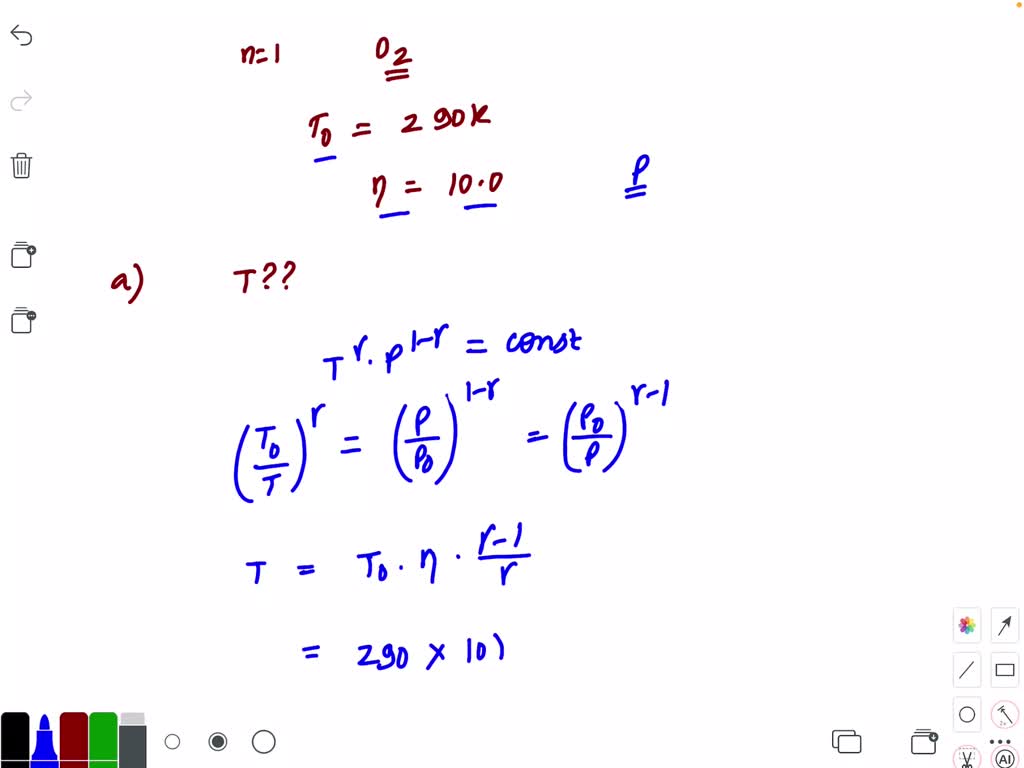 n=1 O2
T0 = 290K
η = 10.0 P
a) T??
T^r · P^1-r = const
(T0/T)^r = (P/P0)^1-r = (P0/P)^r-1
T = T0 · η · r-1/r
= 290 × 10)
AI